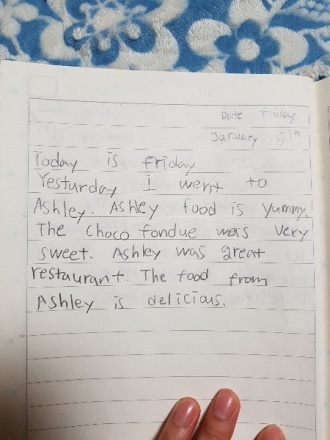 Date Friday
January 5th
Today is friday
Yesturday I went to
Ashley. Ashley food is yummy.
The Choco fondue was very
sweet. Ashley was great
restaurant. The food from
Ashley is delicious.